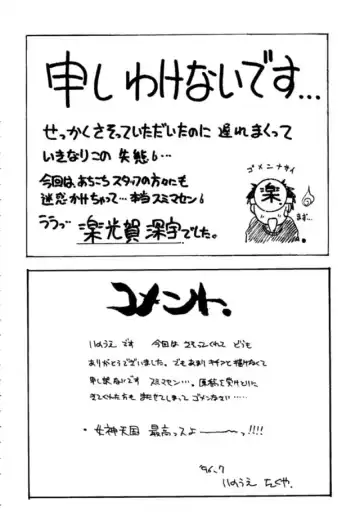 申しわけないです…
せっかくさそっていただいたのに 遅れまくって
いきなりこの 失態6…
今回は、あちこちスタッフの方々にも
迷惑かけちゃって…本当スミマセン6
ううっ
楽光賀 深宇でした。
ゴメンナサイ
楽
コメント.
いのうえです 今回は さそってくれて どうも
ありがとうございました。でもあまり キチンと描けなくて
申し訳ないです スミマセン…。原稿を受けとりに
きてくれた方も またせてしまって ゴメンなさい……
・女神天国 最高っスよーーーっ!!!!
'96.7